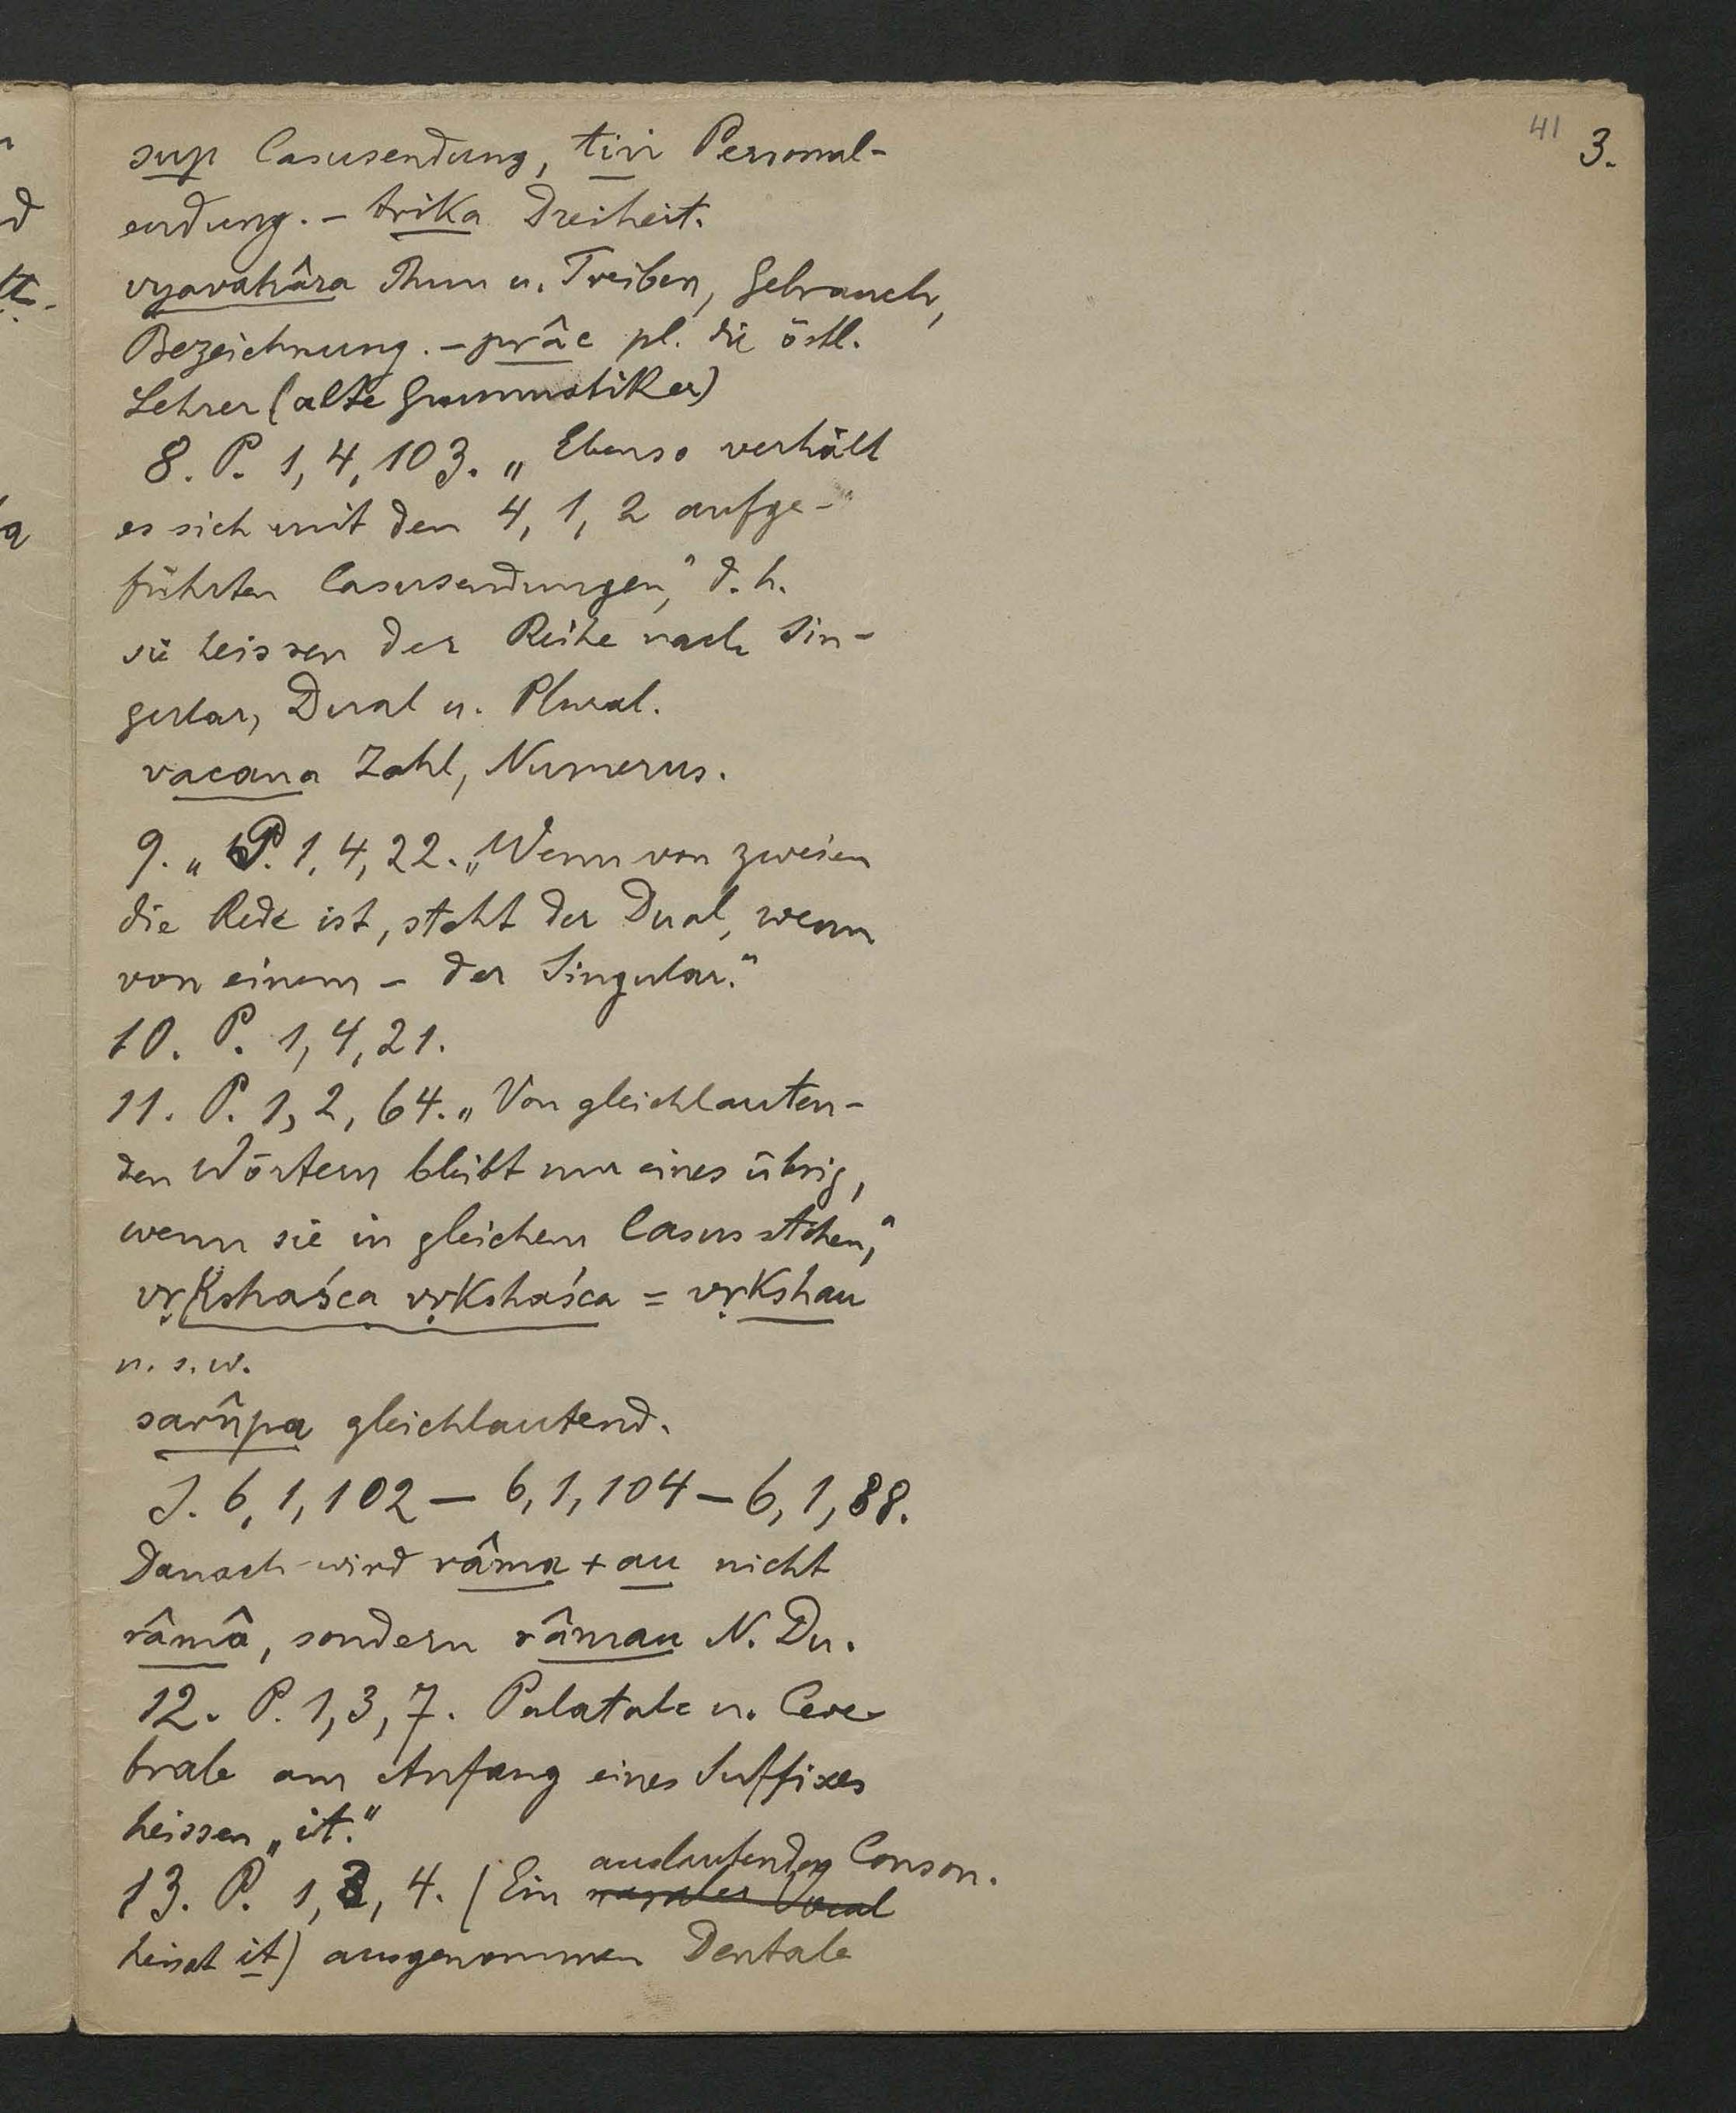 41 3.
sup Casusendung, tiṅ Personal-
endung. – trika Dreiheit.
vyavahâra Thun u. Treiben, Gebrauch,
Bezeichnung. – prâc pl. die östl.
Lehrer (alte Grammatiker)
8. P. 1, 4, 103. „Ebenso verhält
es sich mit den 4, 1, 2 aufge-
führten Casusendungen," d. h.
sie heissen der Reihe nach Sin-
gular, Dual u. Plural.
vacana Zahl, Numerus.
9. „ P. 1, 4, 22. „Wenn von zweien
die Rede ist, steht der Dual, wenn
von einem – der Singular."
10. P. 1, 4, 21.
11. P. 1, 2, 64. „Von gleichlauten-
den Wörtern bleibt nur eines übrig,
wenn sie in gleichem Casus stehen,"
vṛkshaśca vṛkshaśca = vṛkshau
u. s. w.
sarûpa gleichlautend.
S. 6, 1, 102 – 6, 1, 104 – 6, 1, 88.
Danach wird râma + au nicht
râmâ, sondern râmau N. Du.
12. P. 1, 3, 7. Palatale u. Cere-
brale am Anfang eines Suffixes
heissen „it."
auslautender Conson.
13. P. 1, 3, 4. (Ein nasaler Vocal
heisst it) ausgenommen Dentale